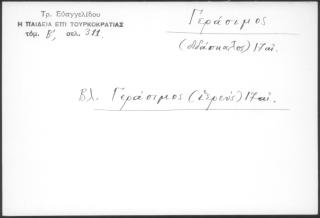 Τρ. Εὐαγγελίδου
Η ΠΑΙΔΕΙΑ ΕΠΙ ΤΟΥΡΚΟΚΡΑΤΙΑΣ
τόμ. Β', σελ. 311
Γεράσιμος
(διδάσκαλος) 17 αἰ.
Βλ. Γεράσιμος (ἱερεύς) 17 αἰ.